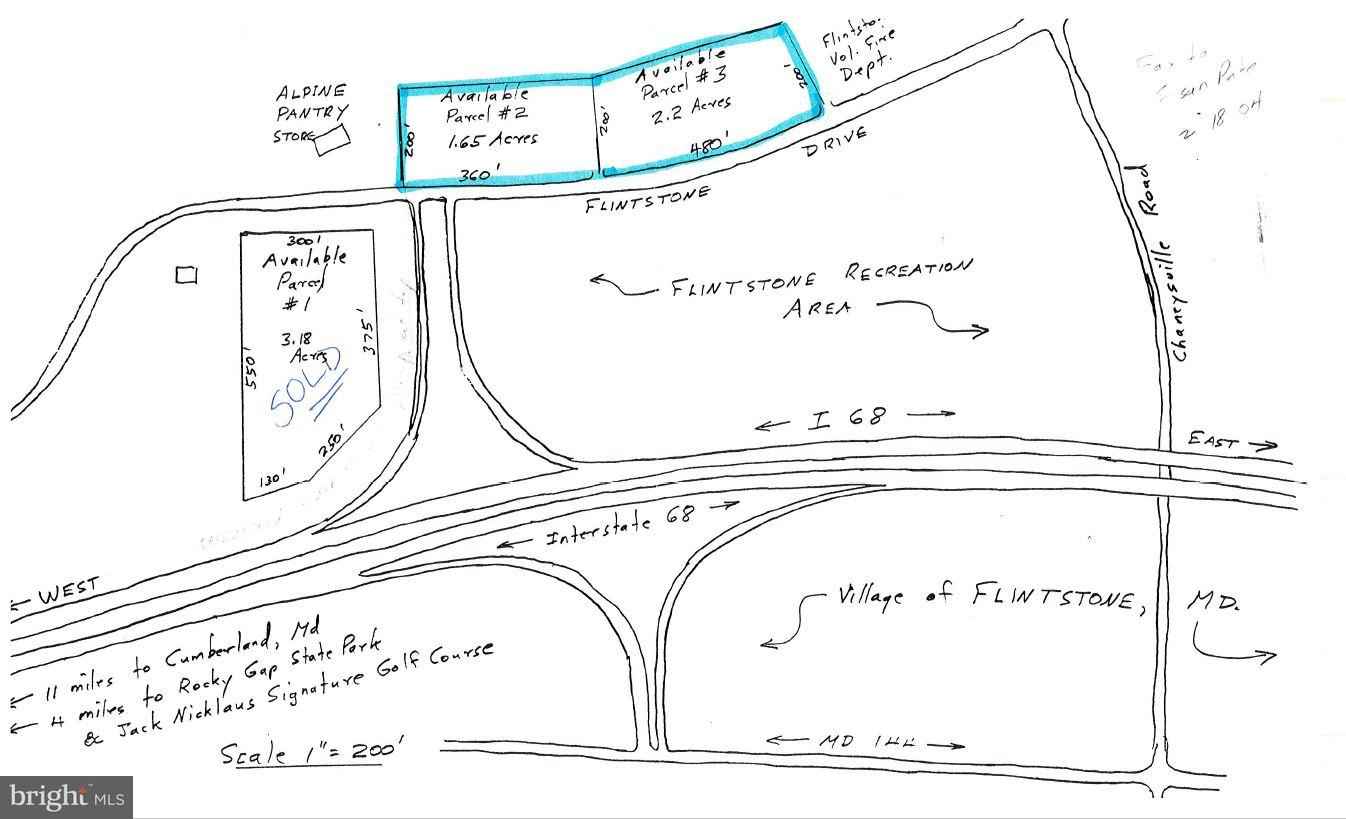 ALPINE
PANTRY
STORE
Available
Parcel #2
1.65 Acres
200'
360'
Available
Parcel #3
2.2 Acres
200'
200'
480'
Flintsto.
Vol. Fire
Dept.
Fax to
18 04
FLINTSTONE
DRIVE
Chaneysville Road
300'
Available
Parcel
#1
3.18
Acres
SOLD
550'
375'
250'
130'
FLINTSTONE RECREATION
AREA
I 68
EAST
Interstate 68
WEST
Village of FLINTSTONE, MD.
11 miles to Cumberland, Md
4 miles to Rocky Gap State Park
& Jack Nicklaus Signature Golf Course
Scale 1"= 200'
MD 144
bright MLS